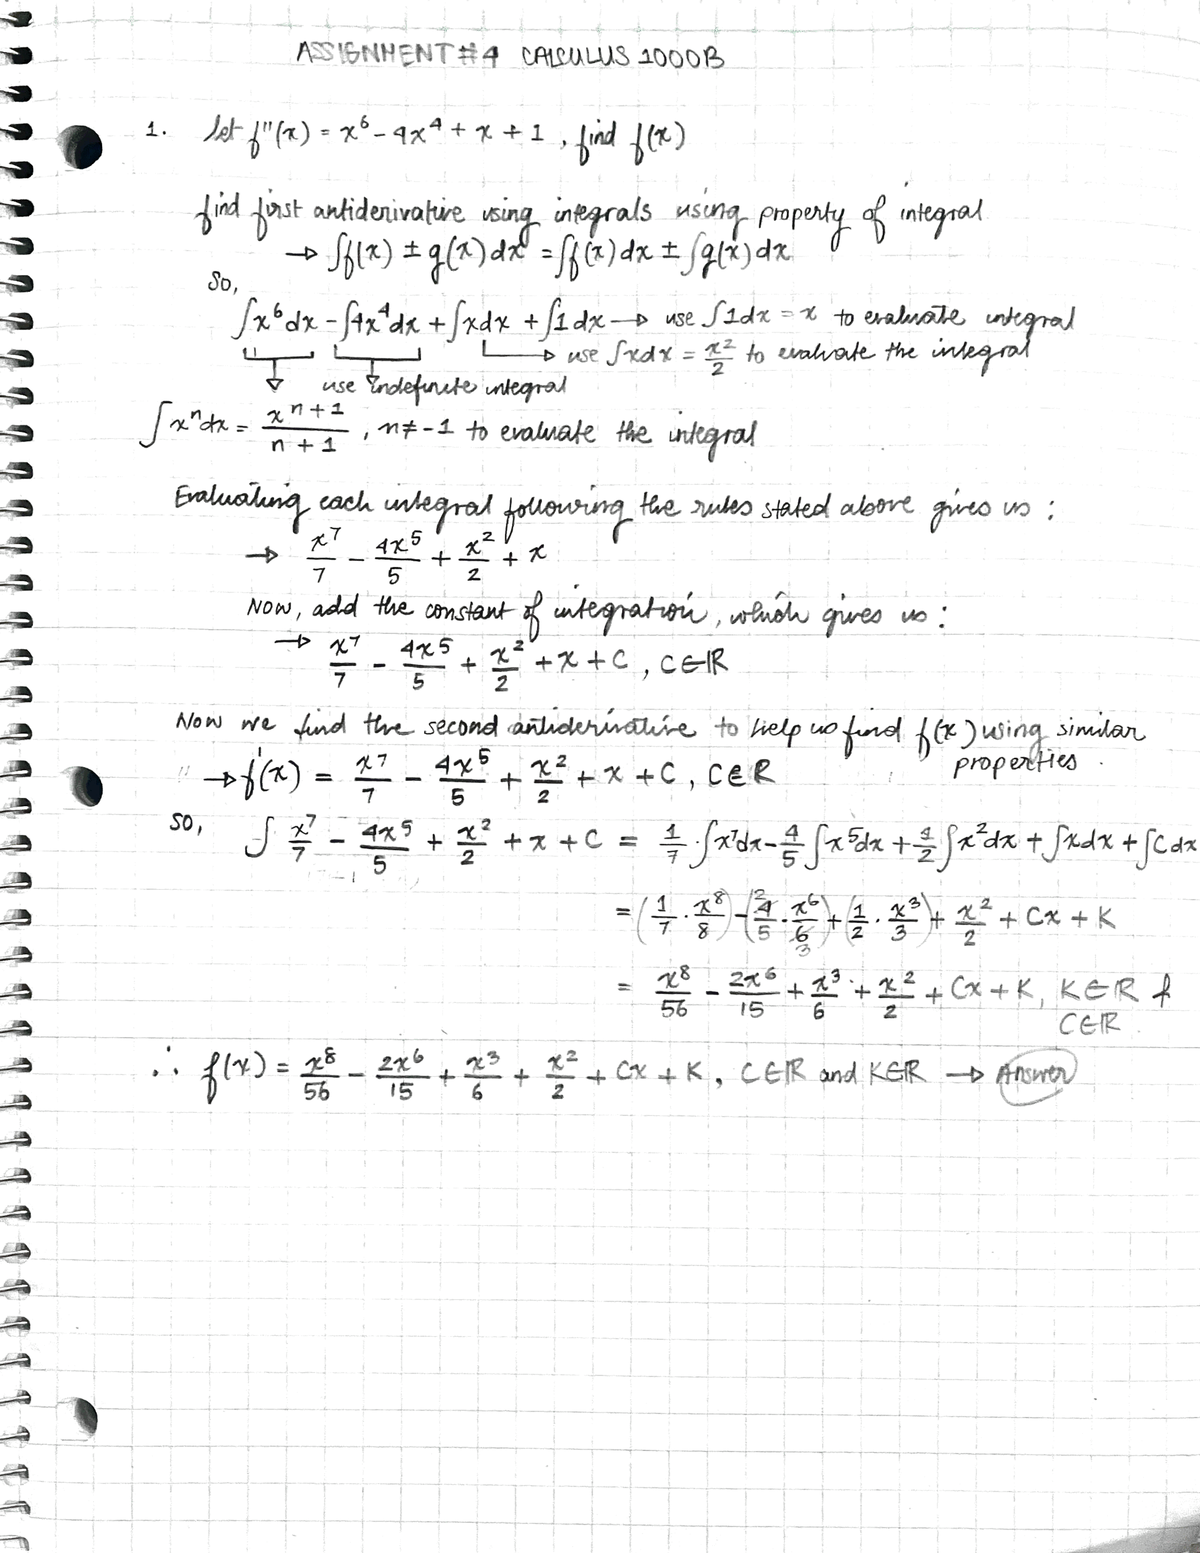 ASSIGNMENT #4 CALCULUS 1000B
1. Let f''(x) = x⁶ - 4x⁴ + x + 1, find f(x)
find first antiderivative using integrals using property of integral
→ ∫f(x) ± g(x) dx = ∫f(x) dx ± ∫g(x) dx
So,
∫x⁶dx - ∫4x⁴dx + ∫xdx + ∫1dx → use ∫1dx = x to evaluate integral
→ use ∫xdx = x²/2 to evaluate the integral
use indefinite integral
∫xⁿdx = xⁿ⁺¹/(n+1), n≠-1 to evaluate the integral
Evaluating each integral following the rules stated above gives us:
→ x⁷/7 - 4x⁵/5 + x²/2 + x
Now, add the constant of integration, which gives us:
→ x⁷/7 - 4x⁵/5 + x²/2 + x + C, C∈ℝ
Now we find the second antiderivative to help us find f(x) using similar
properties.
→ f'(x) = x⁷/7 - 4x⁵/5 + x²/2 + x + C, C∈R
So, ∫ x⁷/7 - 4x⁵/5 + x²/2 + x + C = 1/7·∫x⁷dx - 4/5∫x⁵dx + 1/2∫x²dx + ∫xdx + ∫Cdx
= (1/7 · x⁸/8) - (4/5 · x⁶/6) + (1/2 · x³/3) + x²/2 + Cx + K
2 3
= x⁸/56 - 2x⁶/15 + x³/6 + x²/2 + Cx + K, K∈ℝ &
C∈ℝ
∴ f(x) = x⁸/56 - 2x⁶/15 + x³/6 + x²/2 + Cx + K, C∈ℝ and K∈ℝ → Answer